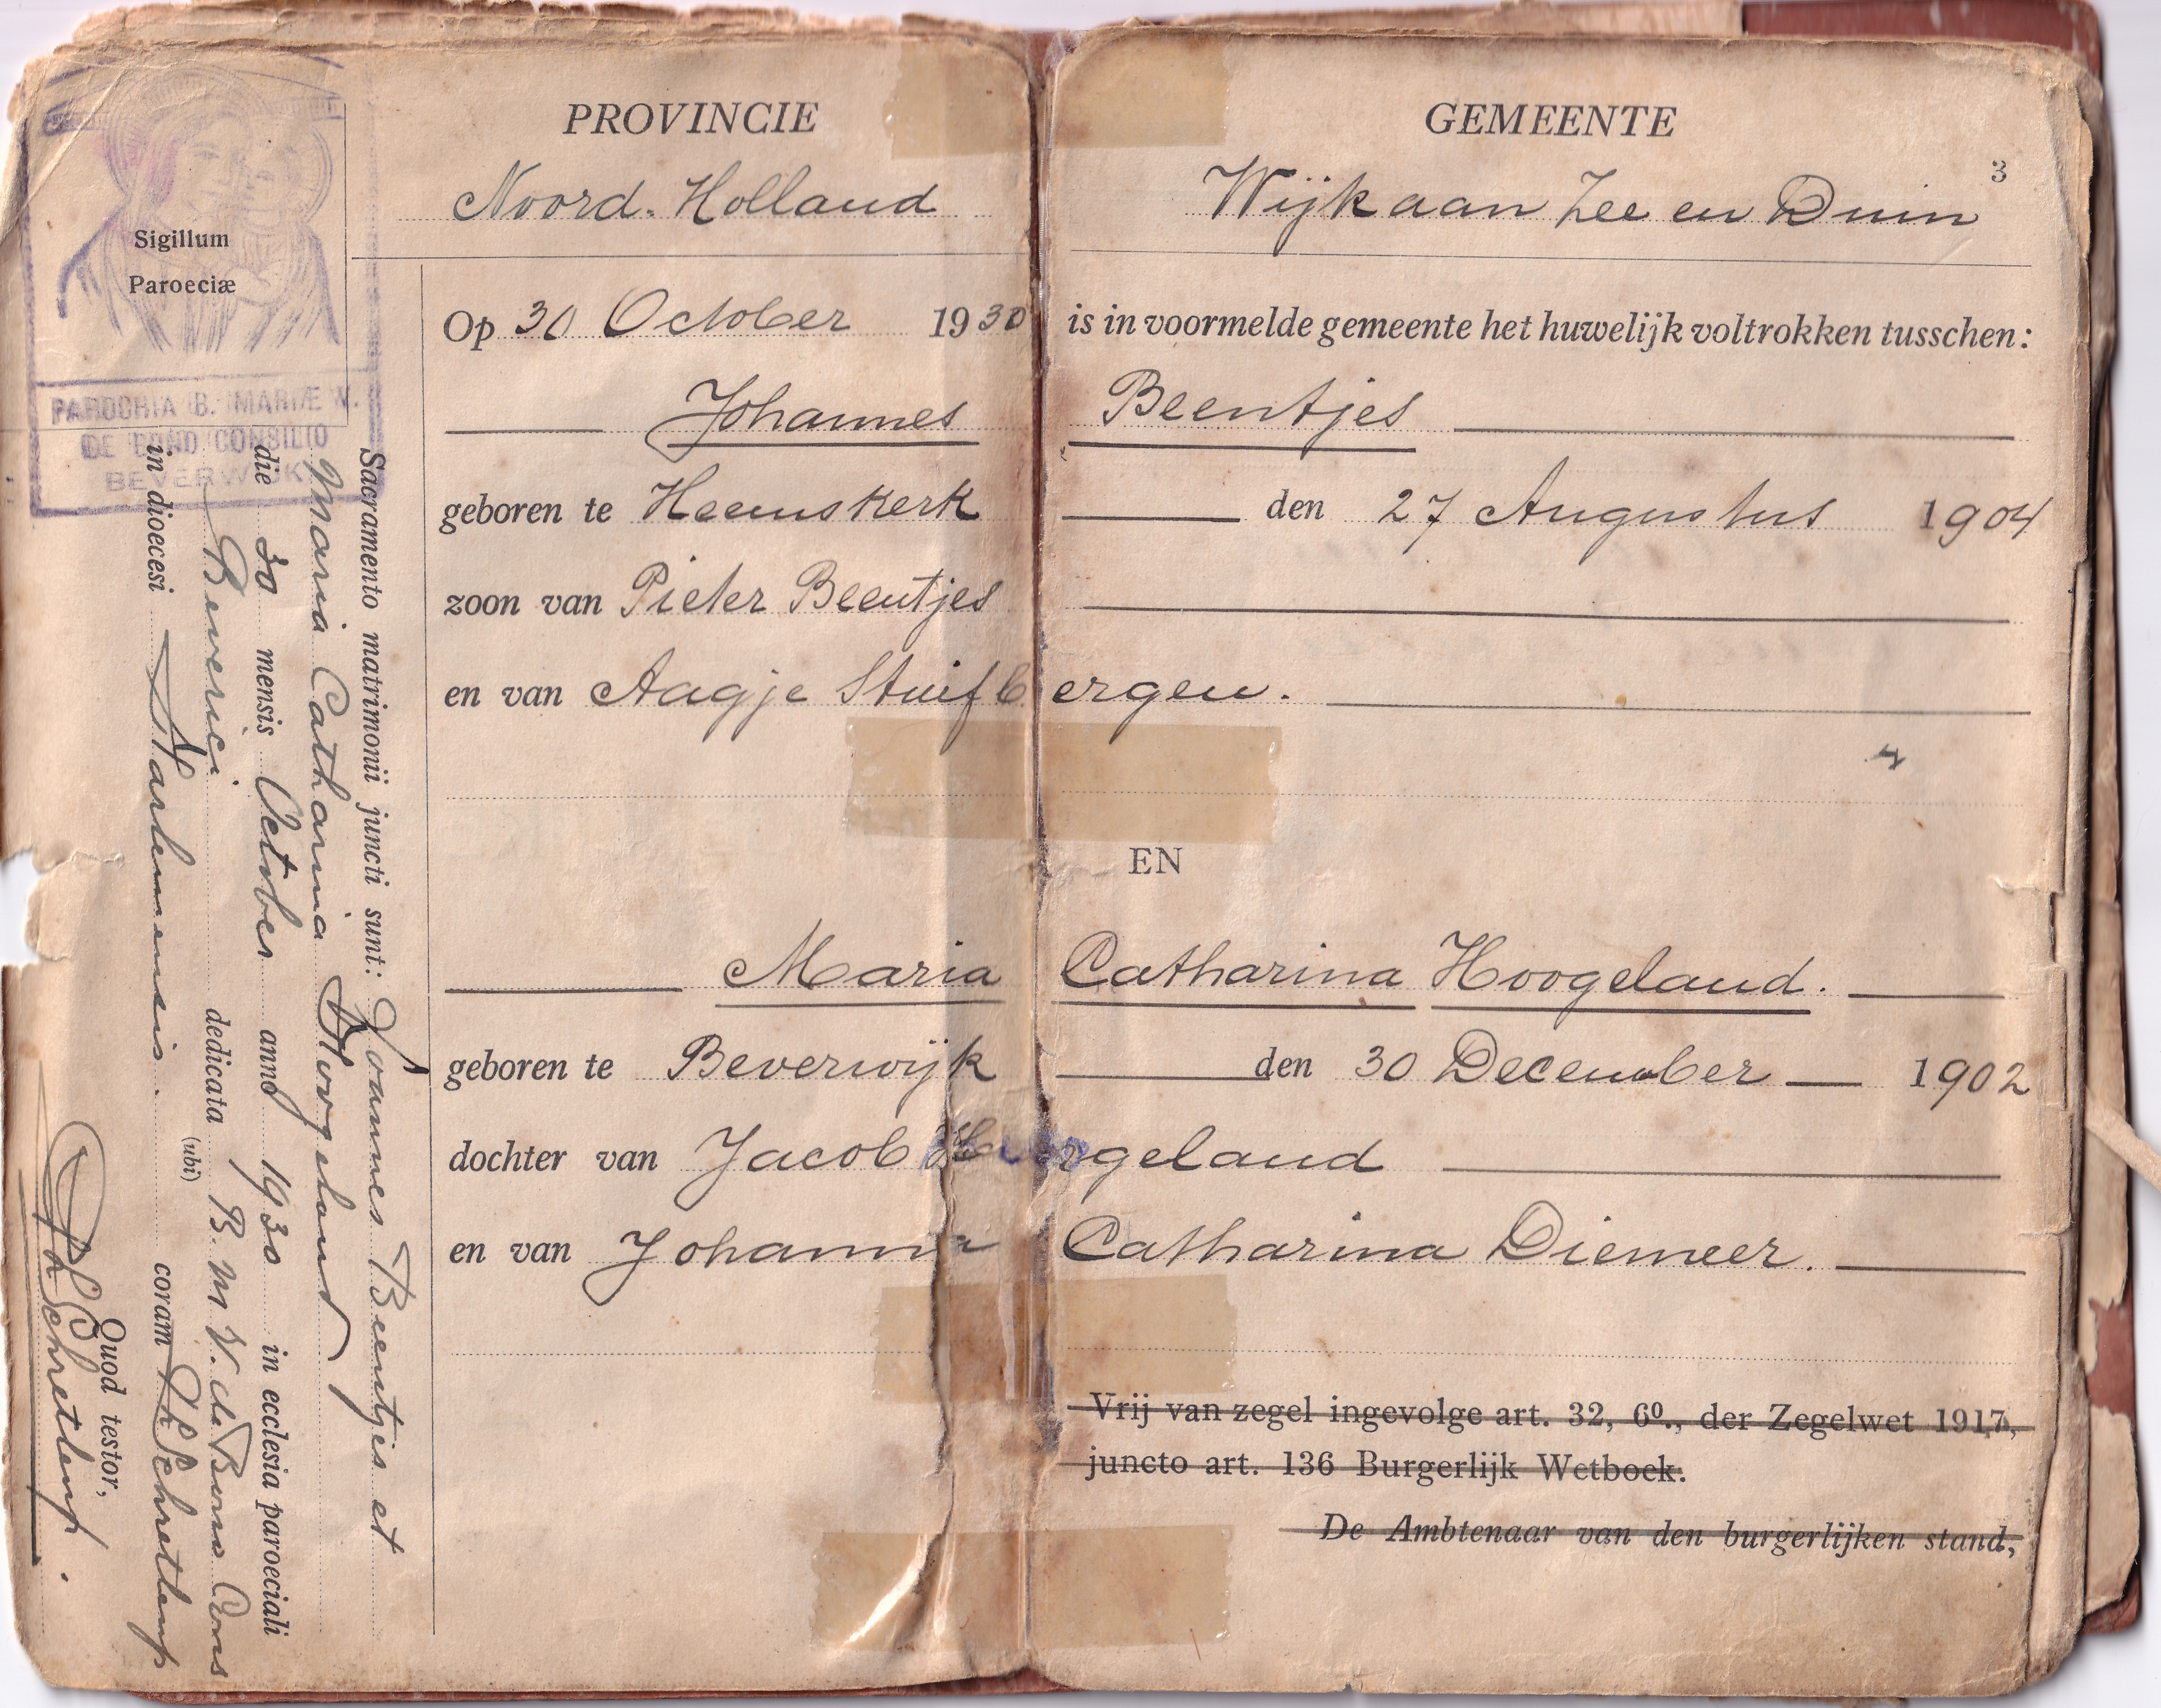 PROVINCIE
Noord-Holland
GEMEENTE
3
Wijk aan Zee en Duin
Op 30 October 1930 is in voormelde gemeente het huwelijk voltrokken tusschen:
Johannes Beentjes
geboren te Heemskerk den 27 Augustus 1904
zoon van Pieter Beentjes
en van Aagje Stuifbergen.
EN
Maria Catharina Hoogeland.
geboren te Beverwijk den 30 December 1902
dochter van Jacob Hoogeland
en van Johanna Catharina Diemeer.
Vrij van zegel ingevolge art. 32, 6º., der Zegelwet 1917,
juncto art. 136 Burgerlijk Wetboek.
De Ambtenaar van den burgerlijken stand,
Sigillum
Paroeciæ
PAROCHIA B. MARIÆ V.
DE BONO CONSILIO
BEVERWIJK
Sacramento matrimonii juncti sunt: Joannes Beentjes et
Maria Catharina Hoogeland
die 30 mensis October anno 1930 in ecclesia paroeciali
Beverwijk dedicata B. M. V. de Bono Cons
(ubi)
in dioecesi Harlemensis. coram Th Schretlenp
Quod testor,